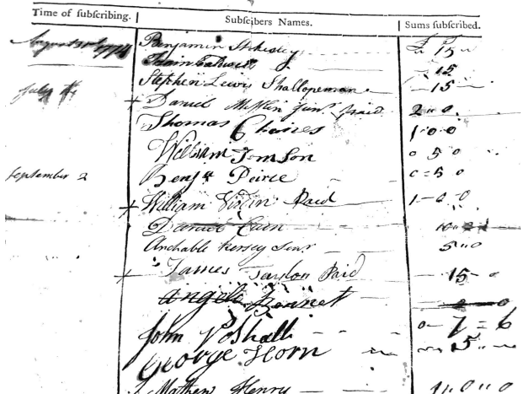 Time of ſubſcribing. Subſcibers Names. Sums ſubſcribed.
August 1774 Benjamin 15
15
Stephen Lewis Shallopeman 15
July + Daniel Mifflin Junr paid 2=0
Thomas Chaires 1=0=0
William Jomson 0 5 0
September 2 Benjn Peirce 0=5 0
+ William Virdin Paid 1-0-0
Daniel Cain 10
Archable Kersey Senr 5=0
+ James Paid 15-0
Angel Bennet
John Voshall 0-7=6
George Horn 5
Mathew Henry 1=0=0